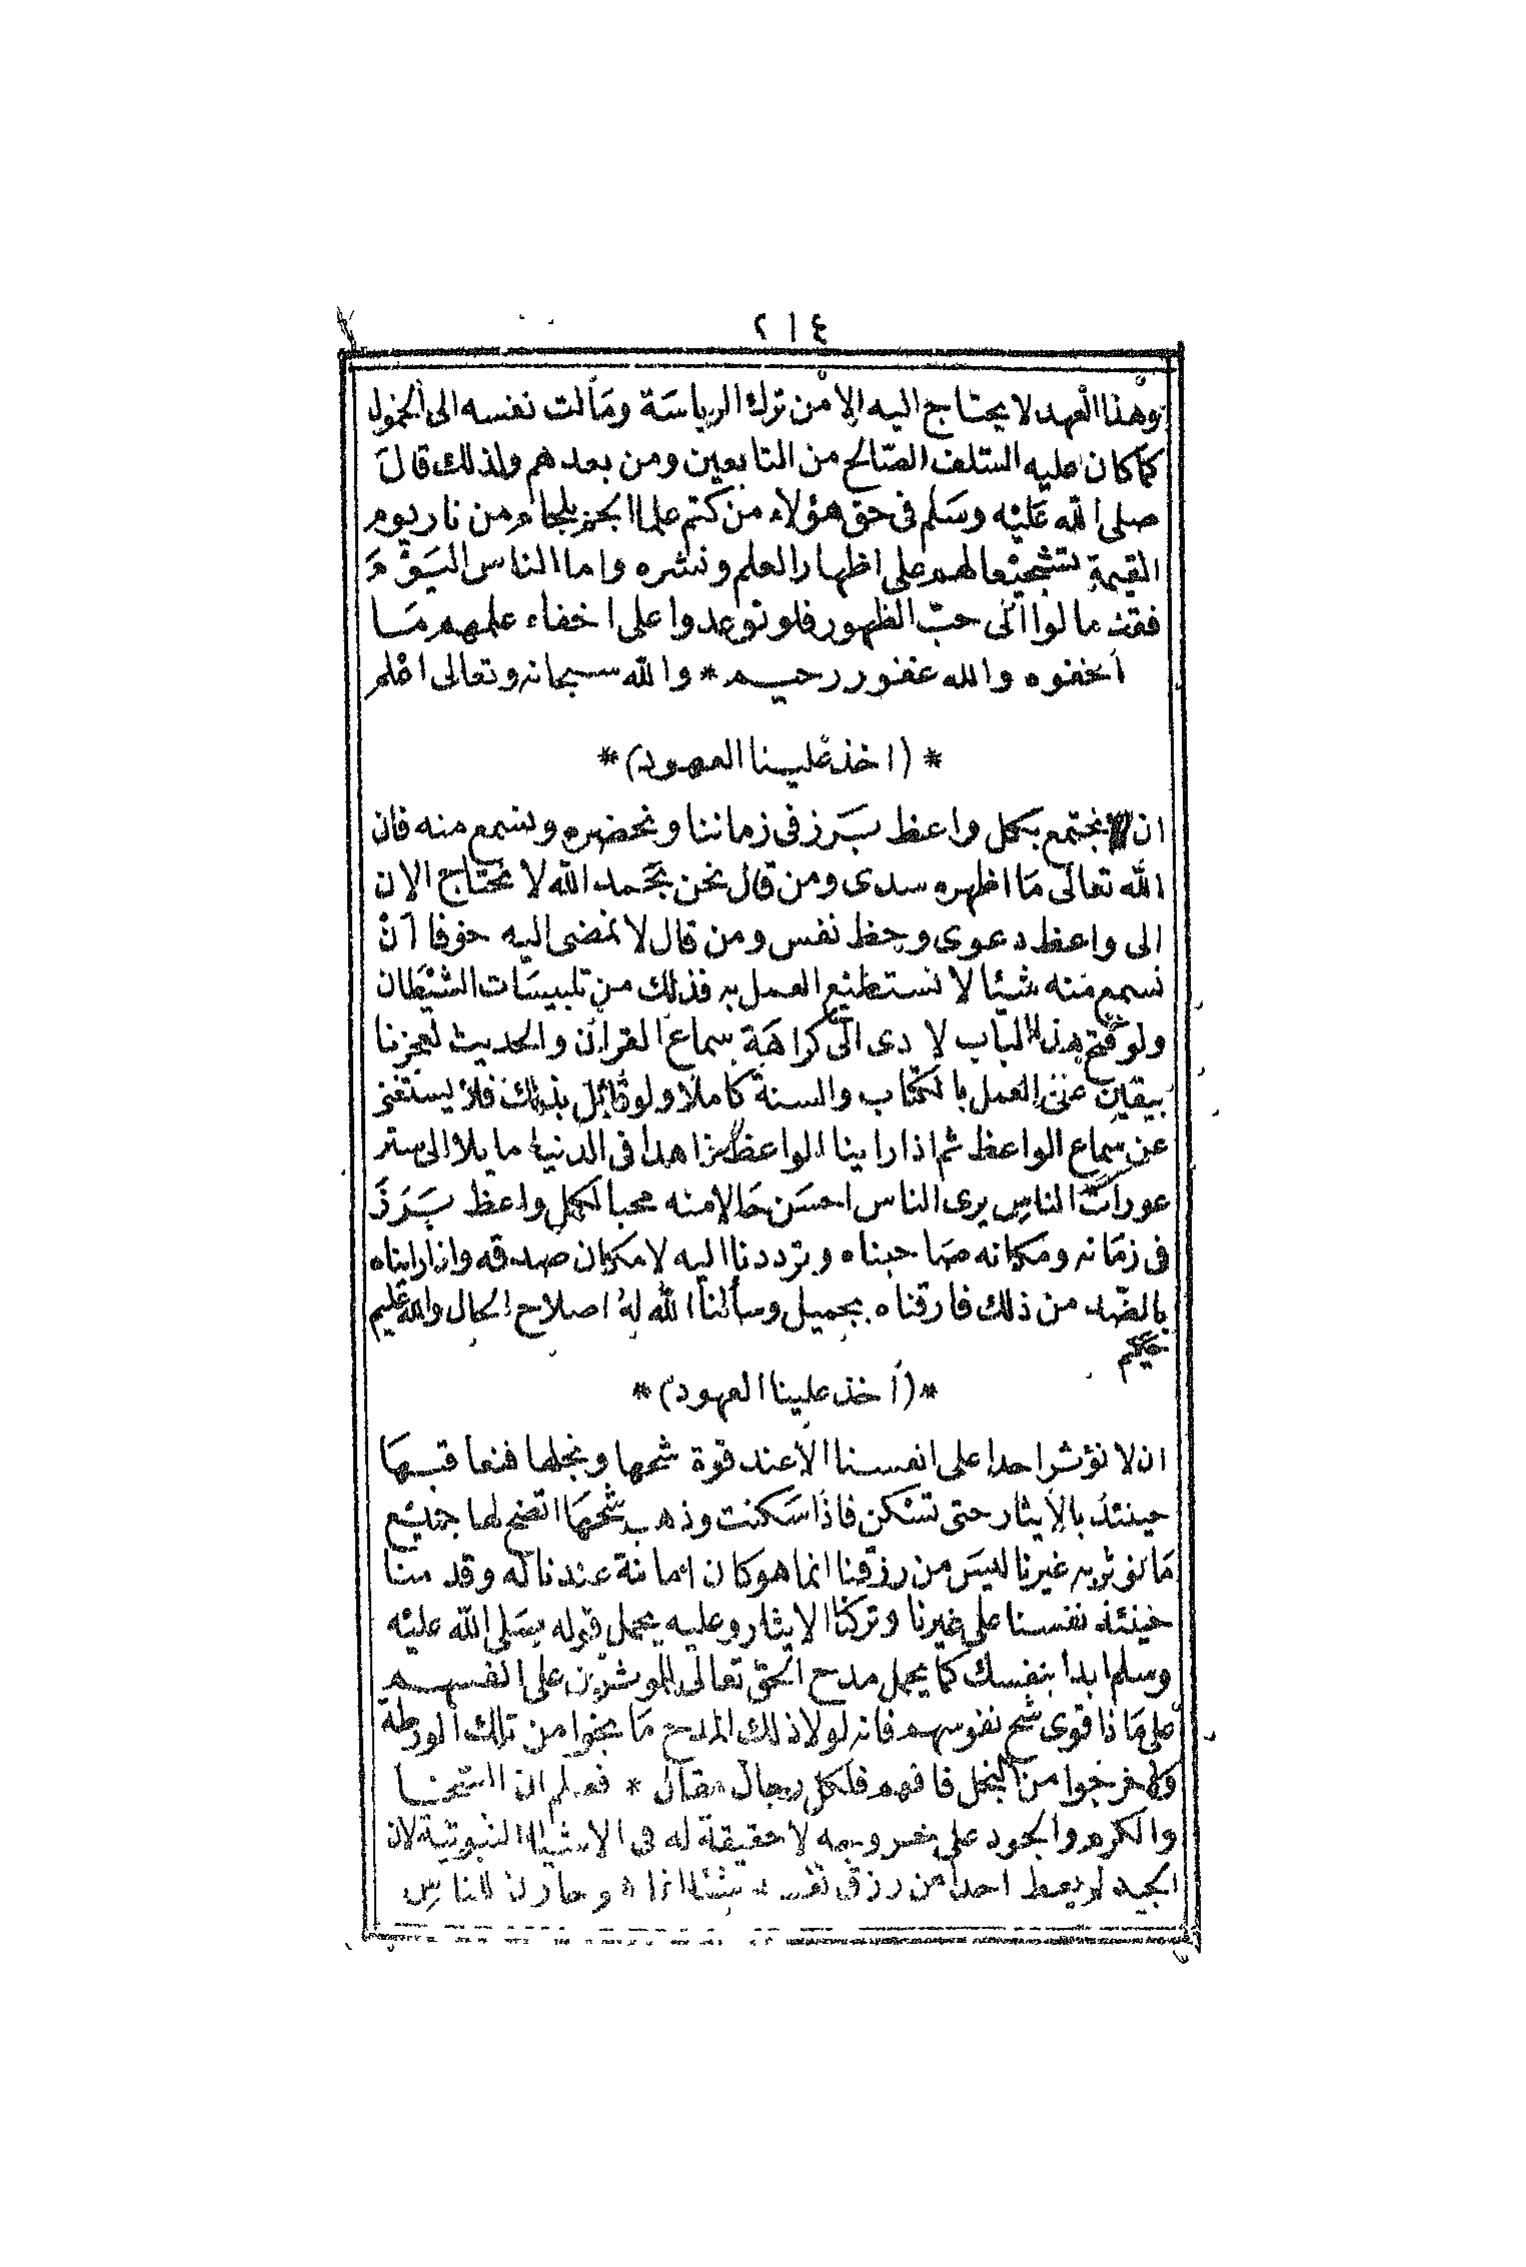 ٢١٤
وهذا العهد لا يحتاج اليه الا من ترك الرياسة ومالت نفسه الى الخمول
كما كان عليه السلف الصالح من التابعين ومن بعدهم ولذلك قال
صلى الله عليه وسلم فى حق هؤلاء من كتم علما الجم بلجام من نار يوم
القيمة تشجيعا لهم على اظهار العلم ونشره واما الناس اليوم
فقد مالوا الى حب الظهور فلو توعدوا على اخفاء علمهم ما
اخفوه والله غفور رحيم * والله سبحانه وتعالى اعلم
* (اخذ علينا العهود) *
ان نجتمع بكل واعظ برز فى زماننا ونحضره ونسمع منه فان
الله تعالى ما اظهره سدى ومن قال نحن بحمد الله لا نحتاج الان
الى واعظ دعوى وحظ نفس ومن قال لا نمضى اليه خوفا ان
نسمع منه شيئا لا نستطيع العمل به فذلك من تلبيسات الشيطان
ولو فتح هذا الباب لادى الى كراهة سماع القران والحديث لعجزنا
بيقين عن العمل بالكتاب والسنة كاملا ولو قائل بذلك فلا يستغنى
عن سماع الواعظ ثم اذا راينا الواعظ زاهدا فى الدنيا مايلا الى ستر
عورات الناس يرى الناس احسن حالا منه محبا لكل واعظ برز
فى زمانه ومكانه صاحبناه وترددنا اليه لامكان صدقه واذا رايناه
بالضد من ذلك فارقناه بجميل وسألنا الله له اصلاح الحال والله عليم
حكيم
* (اخذ علينا العهود) *
ان لا نؤثر احدا على انفسنا الا عند قوة شحها وبخلها فنعاقبها
حينئذ بالايثار حتى تسكن فاذا سكنت وذهب شحها اتضح لها جميع
ما نوثر به غيرنا ليس من رزقنا انما هو كان امانة عندنا له وقدمنا
حينئذ نفسنا على غيرنا وتركنا الايثار وعليه يحمل قوله صلى الله عليه
وسلم ابدا بنفسك كما يحمل مدح الحق تعالى للموثرين على انفسهم
على ما ذا قوى شح نفوسهم فانه لولا ذلك المدح ما نجوا من تلك الورطة
ولا خرجوا من البخل فافهم فلكل رجال مقال * فعلم ان السخا
والكرم والجود على خروجه لا حقيقة له فى الاشيا النبوتية لان
الجيد لم يعط احدا من رزق شيئا وحازن للناس